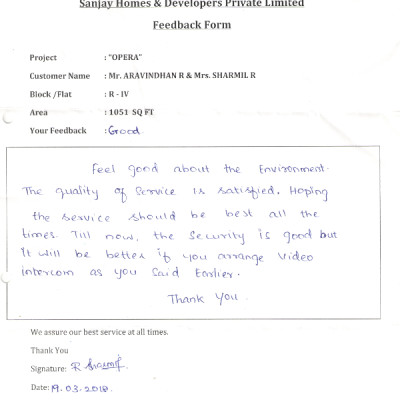 Sanjay Homes & Developers Private Limited
Feedback Form
Project : "OPERA"
Customer Name : Mr. ARAVINDHAN R & Mrs. SHARMIL R
Block /Flat : R - IV
Area : 1051 SQ FT
Your Feedback : Good
Feel good about the Environment.
The quality of service is satisfied. Hoping
the service should be best all the
times. Till now, the Security is good but
it will be better if you arrange Video
intercom as you Said Earlier.
Thank You.
We assure our best service at all times.
Thank You
Signature: R
Date: 19.03.2018.